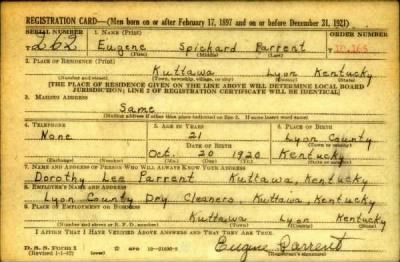 REGISTRATION CARD—(Men born on or after February 17, 1897 and on or before December 31, 1921)
SERIAL NUMBER 1. NAME (Print) ORDER NUMBER
262 Eugene Spickard Parrent 10,365
(First) (Middle) (Last)
2. PLACE OF RESIDENCE (Print)
Kuttawa Lyon Kentucky
(Number and street) (Town, township, village, or city) (County) (State)
[THE PLACE OF RESIDENCE GIVEN ON THE LINE ABOVE WILL DETERMINE LOCAL BOARD
JURISDICTION; LINE 2 OF REGISTRATION CERTIFICATE WILL BE IDENTICAL]
3. MAILING ADDRESS
Same
[Mailing address if other than place indicated on line 2. If same insert word same]
4. TELEPHONE 5. AGE IN YEARS 6. PLACE OF BIRTH
None 21 Lyon County
DATE OF BIRTH (Town or county)
Oct. 20 1920 Kentucky
(Exchange) (Number) (Mo.) (Day) (Yr.) (State or country)
7. NAME AND ADDRESS OF PERSON WHO WILL ALWAYS KNOW YOUR ADDRESS
Dorothy Lee Parrent Kuttawa, Kentucky
8. EMPLOYER'S NAME AND ADDRESS
Lyon County Dry Cleaners Kuttawa, Kentucky
9. PLACE OF EMPLOYMENT OR BUSINESS
Kuttawa Lyon Kentucky
(Number and street or R. F. D. number) (Town) (County) (State)
I AFFIRM THAT I HAVE VERIFIED ABOVE ANSWERS AND THAT THEY ARE TRUE.
D. S. S. Form 1
(Revised 1-1-42) (over) Eugene Parrent
(Registrant's signature)